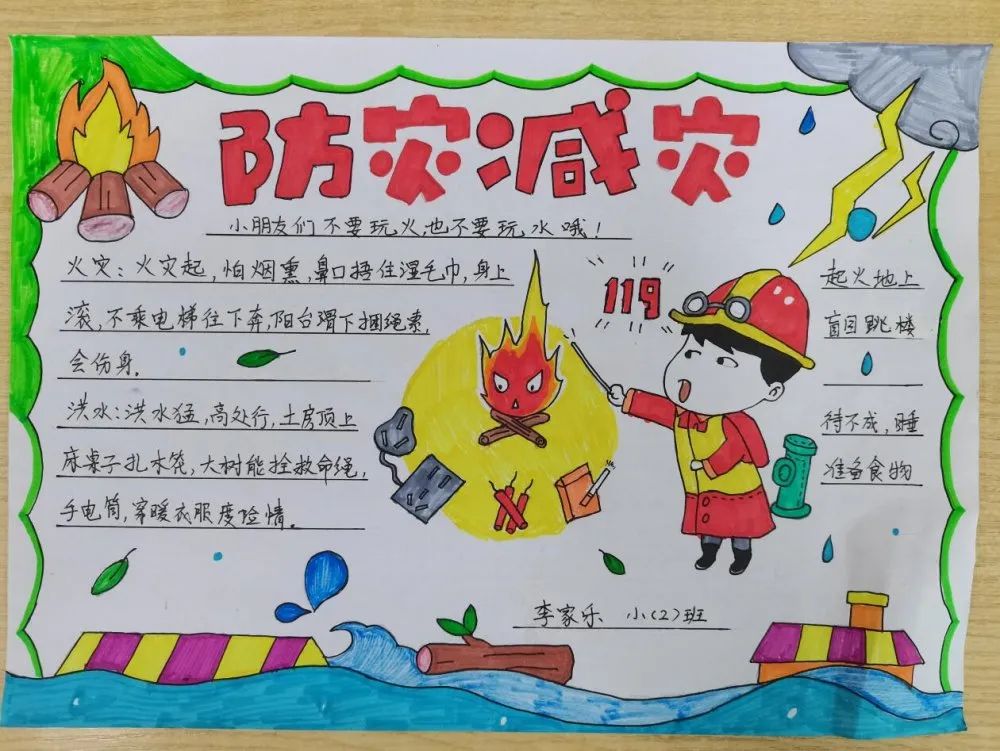 防灾减灾
小朋友们不要玩火，也不要玩水哦！
火灾：火灾起，怕烟熏，鼻口捂住湿毛巾，身上
起火地上
滚，不乘电梯往下奔，阳台滑下捆绳索，
盲目跳楼
会伤身。
119
洪水：洪水猛，高处行，土房顶上
待不成，睡
床桌子扎木筏，大树能拴救命绳，
准备食物
手电筒，穿暖衣服度险情。
李家乐 小（2）班